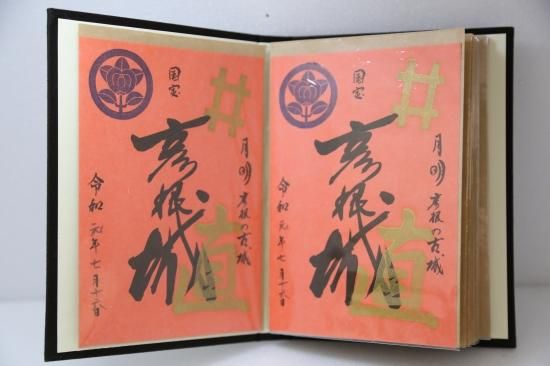 井
直
月明 彦根の古城
国宝
彦根城
令和元年七月
井
直
月明 彦根の古城
国宝
彦根城
令和元年七月